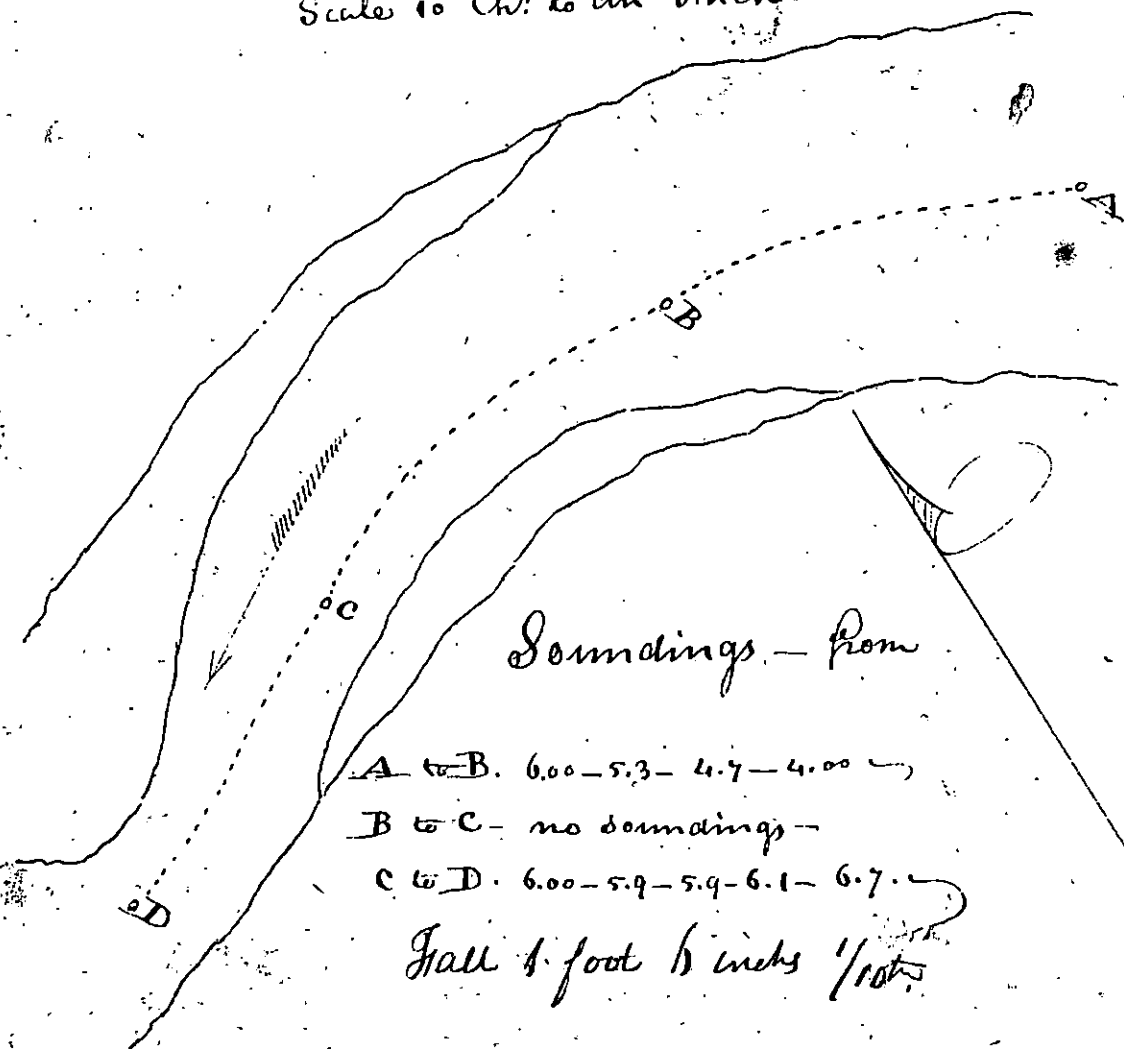 Scale 10 Ch: to an Inch.
A
B
C
D
Soundings – from
A to B. 6.00 – 5.3 – 4.7 – 4.00
B to C – no soundings –
C to D. 6.00 – 5.9 – 5.9 – 6.1 – 6.7.
Fall 1. foot 6 inchs 1/10th.